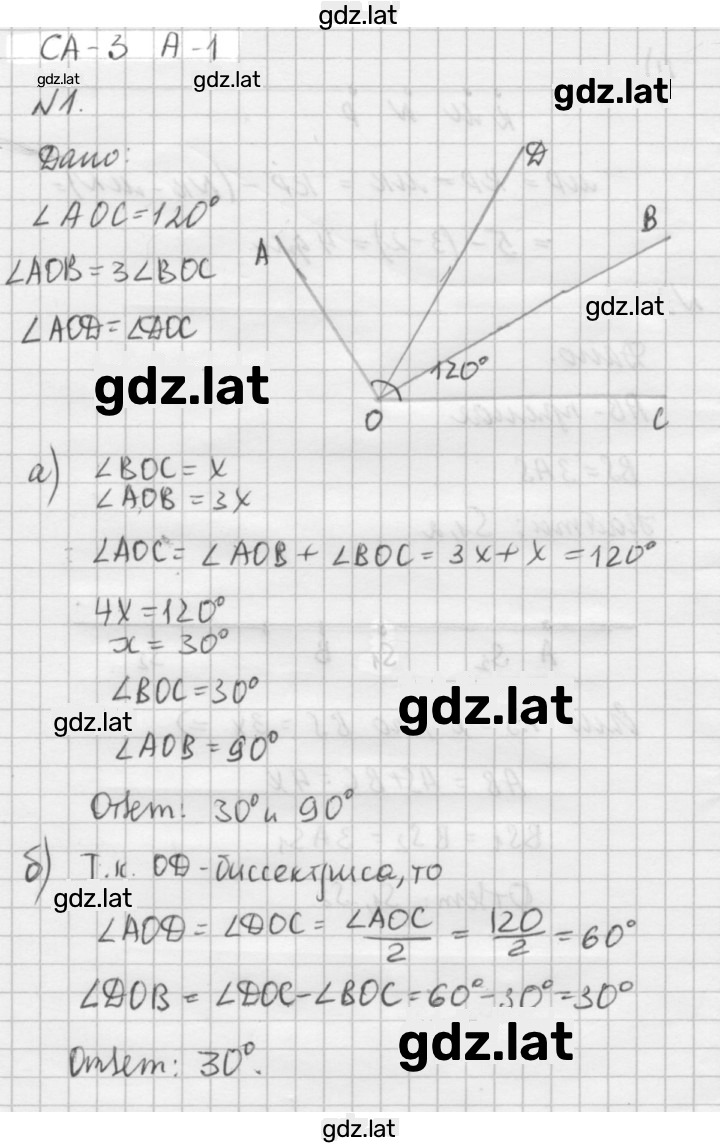 gdz.lat
СА-3 А-1
gdz.lat
gdz.lat
gdz.lat
№1.
Дано:
∠AOC=120°
∠AOB=3∠BOC
∠AOD=∠DOC
A
D
B
gdz.lat
120°
O
C
gdz.lat
а) ∠BOC=x
∠AOB=3x
∠AOC=∠AOB+∠BOC=3x+x=120°
4x=120°
x=30°
∠BOC=30°
gdz.lat
gdz.lat
∠AOB=90°
Ответ: 30° и 90°
б) Т.к. OD-биссектриса, то
gdz.lat
∠AOD=∠DOC=∠AOC/2=120/2=60°
∠DOB=∠DOC-∠BOC=60°-30°=30°
gdz.lat
Ответ: 30°.
gdz.lat